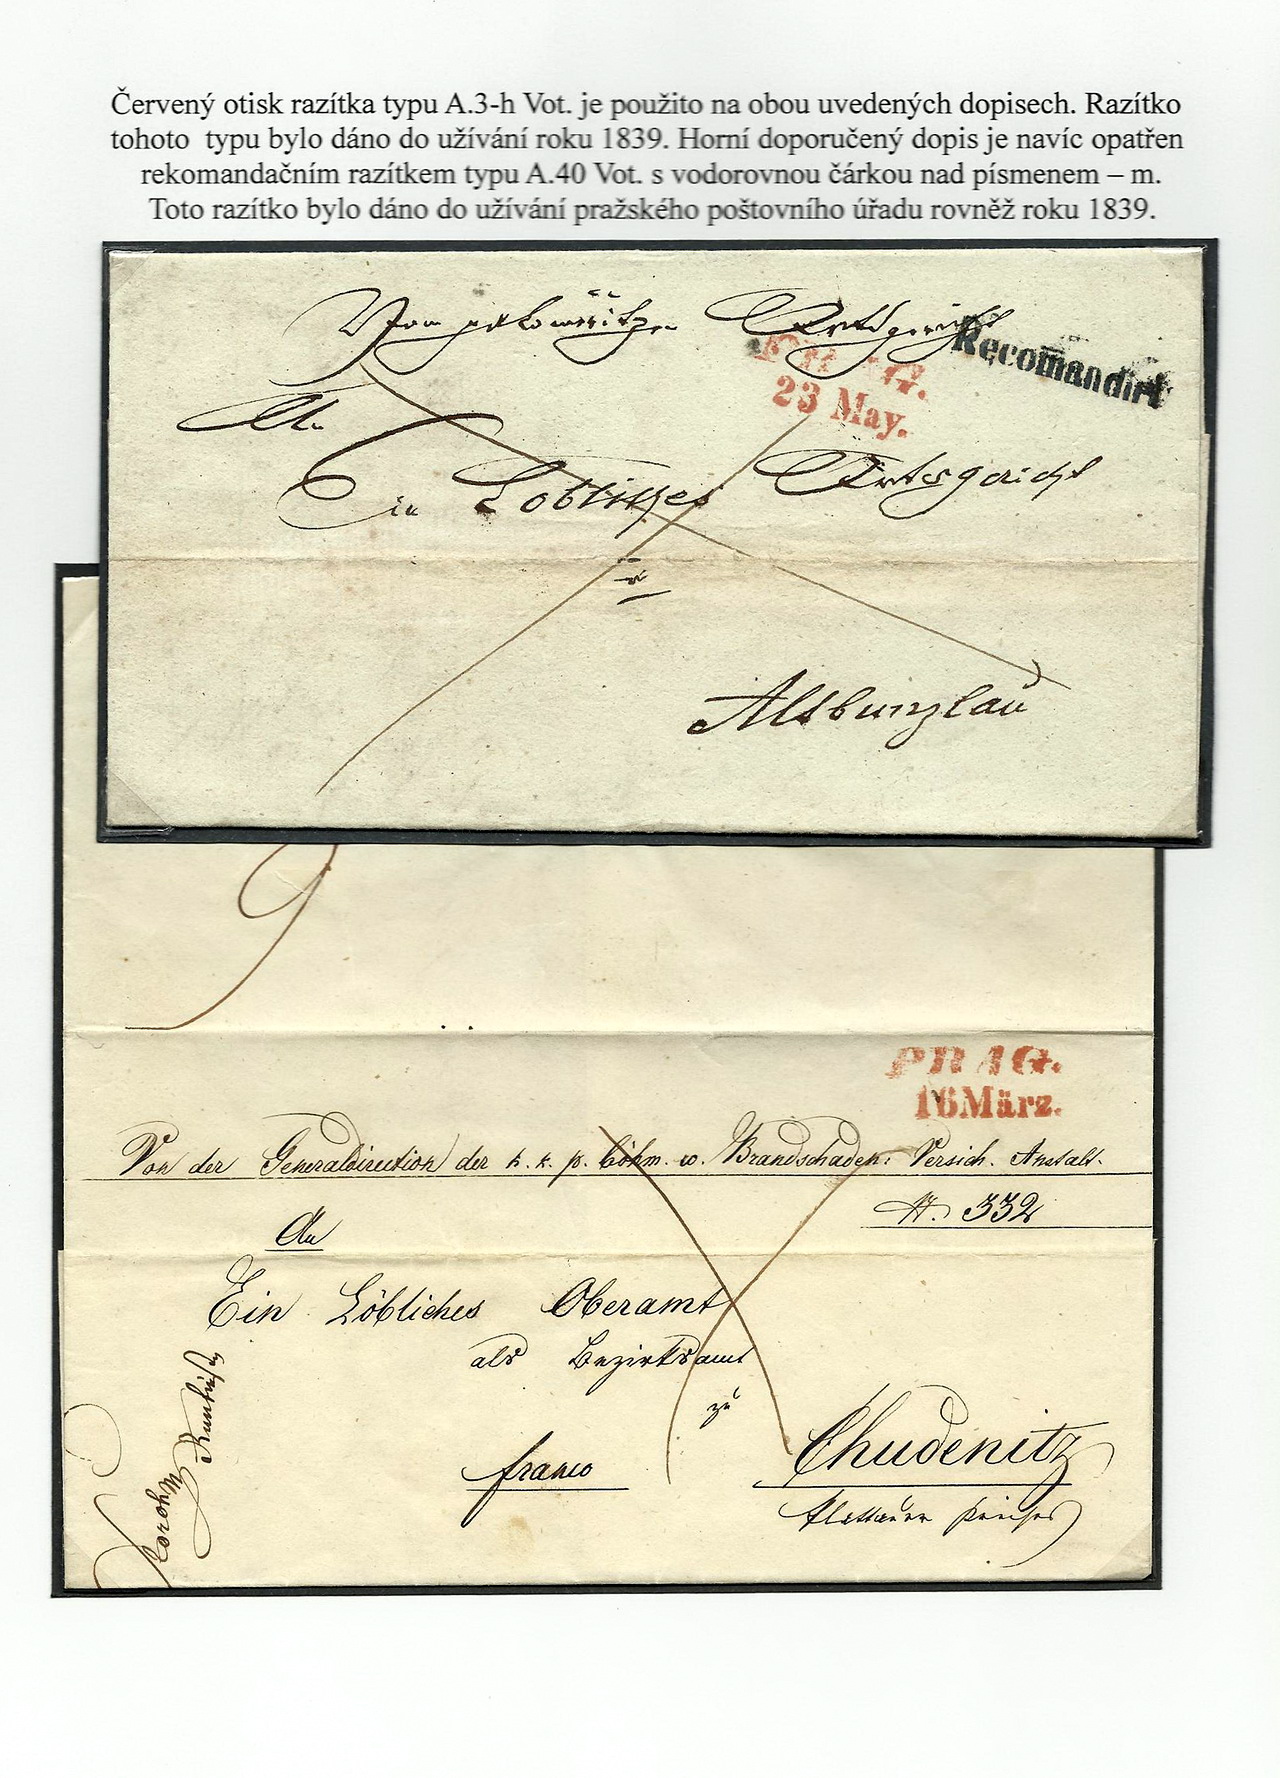 Červený otisk razítka typu A.3-h Vot. je použito na obou uvedených dopisech. Razítko
tohoto typu bylo dáno do užívání roku 1839. Horní doporučený dopis je navíc opatřen
rekomandačním razítkem typu A.40 Vot. s vodorovnou čárkou nad písmenem – m.
Toto razítko bylo dáno do užívání pražského poštovního úřadu rovněž roku 1839.
Recom̄andirt
23 May.
An
Ein Löbliches
Altbunzlau
PRAG.
16 März.
Von der Generaldirection der k. k. p. böhm. w. Brandschaden: Versich. Anstalt.
N. 332
An
Ein Löbliches Oberamt
als Bezirksamt
zu
franco
Chudenitz